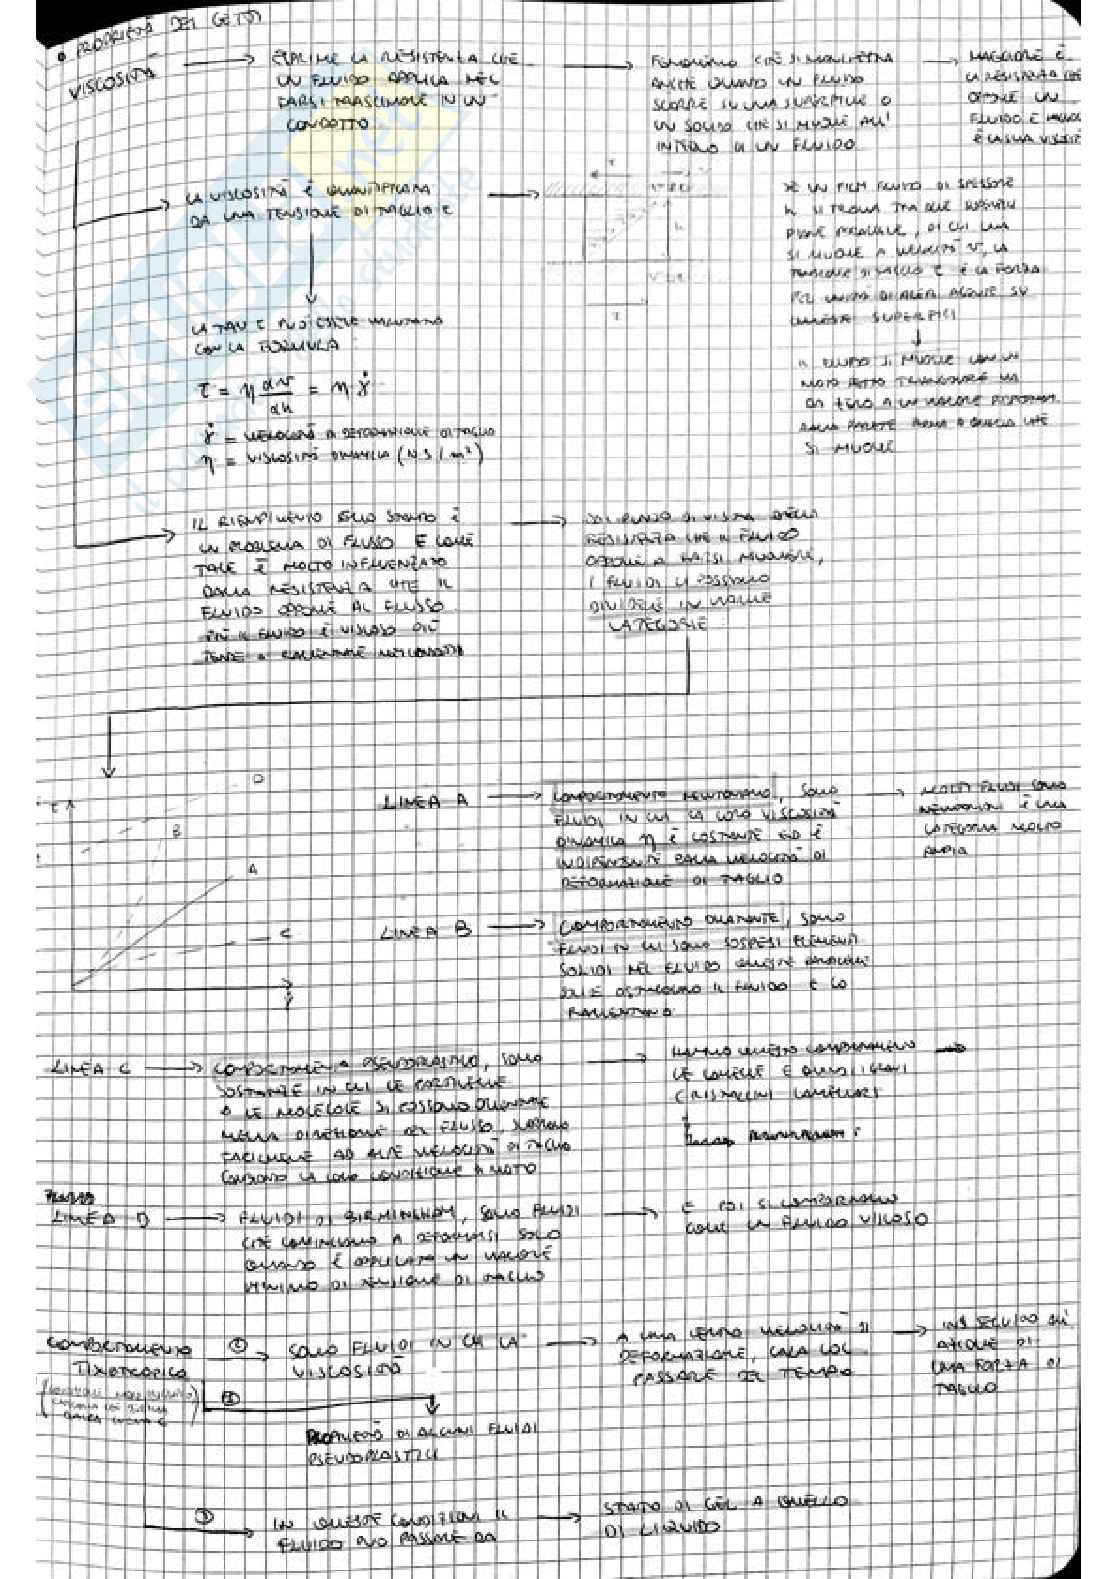 • PROPRIETÀ DEI GETTI
VISCOSITÀ
ESPRIME LA RESISTENZA CHE
UN FLUIDO APPLICA NEL
FARSI TRASCINARE IN UN
CONDOTTO
FENOMENO CHE SI MANIFESTA
ANCHE QUANDO UN FLUIDO
SCORRE SU UNA SUPERFICIE O
UN SOLIDO CHE SI MUOVE ALL'
INTERNO DI UN FLUIDO
MAGGIORE È
LA RESISTENZA CHE
OPPONE UN
FLUIDO E
È LA SUA VISCOSITÀ
LA VISCOSITÀ È QUANTIFICATA
DA UNA TENSIONE DI TAGLIO τ
SE UN FILM FLUIDO DI SPESSORE
h SI TROVA TRA DUE SUPERFICI
PIANE PARALLELE, DI CUI UNA
SI MUOVE A VELOCITÀ v, LA
TENSIONE DI TAGLIO τ È LA FORZA
PER UNITÀ DI AREA AGENTE SU
QUESTE SUPERFICI
IL FLUIDO SI MUOVE CON UN
MOTO DETTO
DA ZERO A UN VALORE
DALLA PARETE FERMA A QUELLA CHE
SI MUOVE
LA TAU τ PUÒ ESSERE
CON LA FORMULA
τ = η dv/dh = η γ̇
γ̇ = VELOCITÀ DI DEFORMAZIONE DI TAGLIO
η = VISCOSITÀ DINAMICA (N S / m²)
IL RIEMPIMENTO DELLO STAMPO È
UN PROBLEMA DI FLUSSO E COME
TALE È MOLTO INFLUENZATO
DALLA RESISTENZA CHE IL
FLUIDO OPPONE AL FLUSSO
PIÙ IL FLUIDO È VISCOSO PIÙ
TENDE A RALLENTARE
DAL PUNTO DI VISTA DELLA
RESISTENZA CHE IL FLUIDO
OPPONE A FARSI MUOVERE,
I FLUIDI SI POSSONO
DIVIDERE IN VARIE
CATEGORIE
τ
D
B
A
C
γ̇
LINEA A
COMPORTAMENTO NEWTONIANO, SONO
FLUIDI IN CUI LA LORO VISCOSITÀ
DINAMICA η È COSTANTE ED È
INDIPENDENTE DALLA VELOCITÀ DI
DEFORMAZIONE DI TAGLIO
MOLTI FLUIDI SONO
NEWTONIANI È UNA
CATEGORIA MOLTO
AMPIA
LINEA B
COMPORTAMENTO DILATANTE, SONO
FLUIDI IN CUI SONO SOSPESI ELEMENTI
SOLIDI NEL FLUIDO QUESTE PARTICELLE
OSTACOLANO IL FLUIDO E LO
RALLENTANO
LINEA C
COMPORTAMENTO PSEUDOPLASTICO, SONO
SOSTANZE IN CUI LE PARTICELLE
O LE MOLECOLE SI POSSONO ORIENTARE
NELLA DIREZIONE DEL FLUSSO,
FACILMENTE AD ALTE VELOCITÀ DI TAGLIO
LA LORO CONDIZIONE DI MOTO
HANNO QUESTO COMPORTAMENTO
LE E QUINDI I
CRISTALLINI LAMELLARI
LINEA D
FLUIDI DI BIRMINGHAM, SONO FLUIDI
CHE COMINCIANO A DEFORMARSI SOLO
QUANDO È APPLICATO UN VALORE
MINIMO DI TENSIONE DI TAGLIO
E POI SI COMPORTANO
COME UN FLUIDO VISCOSO
COMPORTAMENTO
TIXOTROPICO
①
SONO FLUIDI IN CUI LA
VISCOSITÀ
A UNA CERTA VELOCITÀ DI
DEFORMAZIONE, CALA COL
PASSARE DEL TEMPO
IN SEGUITO ALL'
AZIONE DI
UNA FORZA DI
TAGLIO
②
PROPRIETÀ DI ALCUNI FLUIDI
PSEUDOPLASTICI
③
IN QUESTE CONDIZIONI IL
FLUIDO PUÒ PASSARE DA
STATO DI GEL A QUELLO
DI LIQUIDO